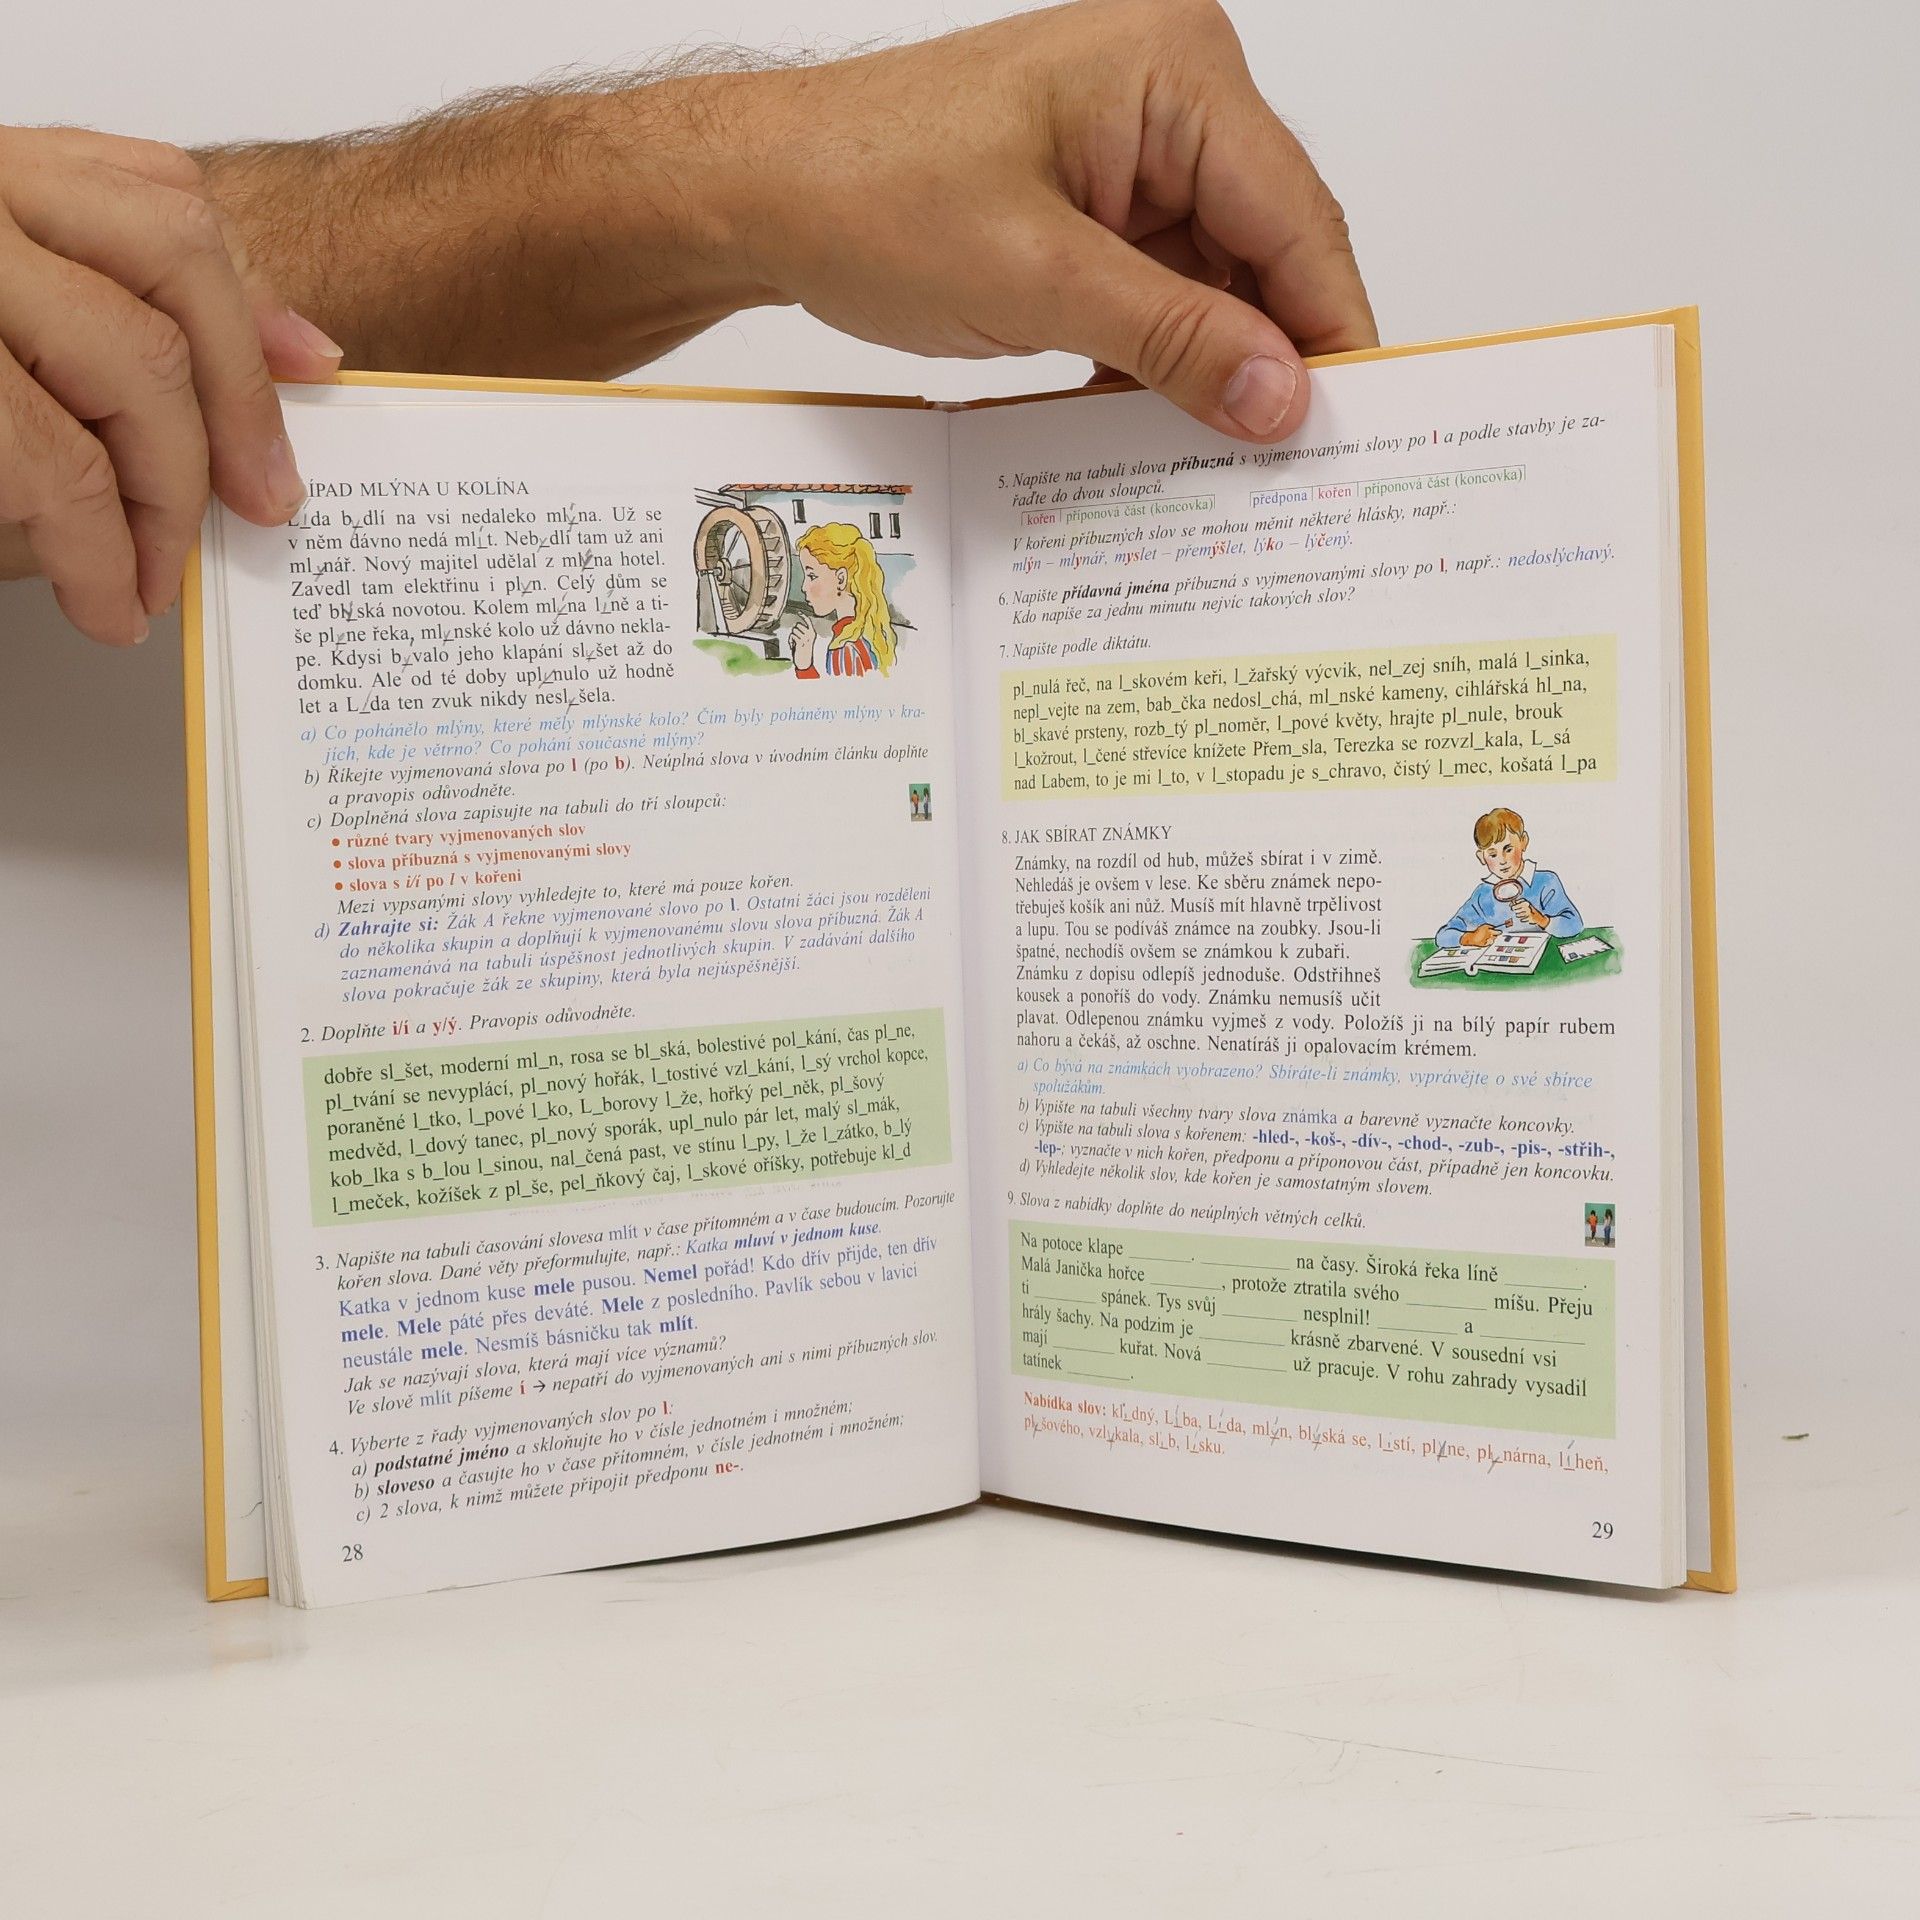 ÍPAD MLÝNA U KOLÍNA
L_da b_dlí na vsi nedaleko ml_na. Už se
v něm dávno nedá ml_t. Neb_dlí tam už ani
ml_nář. Nový majitel udělal z ml_na hotel.
Zavedl tam elektřinu i pl_n. Celý dům se
teď bl_ská novotou. Kolem ml_na l_ně a ti-
še pl_ne řeka, ml_nské kolo už dávno nekla-
pe. Kdysi b_valo jeho klapání sl_šet až do
domku. Ale od té doby upl_nulo už hodně
let a L_da ten zvuk nikdy nesl_šela.
a) Co pohánělo mlýny, které měly mlýnské kolo? Čím byly poháněny mlýny v kra-
jích, kde je větrno? Co pohání současné mlýny?
b) Říkejte vyjmenovaná slova po l (po b). Neúplná slova v úvodním článku doplňte
a pravopis odůvodněte.
c) Doplněná slova zapisujte na tabuli do tří sloupců:
• různé tvary vyjmenovaných slov
• slova příbuzná s vyjmenovanými slovy
• slova s i/í po l v kořeni
Mezi vypsanými slovy vyhledejte to, které má pouze kořen.
d) Zahrajte si: Žák A řekne vyjmenované slovo po l. Ostatní žáci jsou rozděleni
do několika skupin a doplňují k vyjmenovanému slovu slova příbuzná. Žák A
zaznamenává na tabuli úspěšnost jednotlivých skupin. V zadávání dalšího
slova pokračuje žák ze skupiny, která byla nejúspěšnější.
2. Doplňte i/í a y/ý. Pravopis odůvodněte.
dobře sl_šet, moderní ml_n, rosa se bl_ská, bolestivé pol_kání, čas pl_ne,
pl_tvání se nevyplácí, pl_nový hořák, l_tostivé vzl_kání, l_sý vrchol kopce,
poraněné l_tko, l_pové l_ko, L_borovy l_že, hořký pel_něk, pl_šový
medvěd, l_dový tanec, pl_nový sporák, upl_nulo pár let, malý sl_mák,
kob_lka s b_lou l_sinou, nal_čená past, ve stínu l_py, l_že l_zátko, b_lý
l_meček, kožíšek z pl_še, pel_ňkový čaj, l_skové oříšky, potřebuje kl_d
3. Napište na tabuli časování slovesa mlít v čase přítomném a v čase budoucím. Pozorujte
kořen slova. Dané věty přeformulujte, např.: Katka mluví v jednom kuse.
Katka v jednom kuse mele pusou. Nemel pořád! Kdo dřív přijde, ten dřív
mele. Mele páté přes deváté. Mele z posledního. Pavlík sebou v lavici
neustále mele. Nesmíš básničku tak mlít.
Jak se nazývají slova, která mají více významů?
Ve slově mlít píšeme í → nepatří do vyjmenovaných ani s nimi příbuzných slov.
4. Vyberte z řady vyjmenovaných slov po l:
a) podstatné jméno a skloňujte ho v čísle jednotném i množném;
b) sloveso a časujte ho v čase přítomném, v čísle jednotném i množném;
c) 2 slova, k nimž můžete připojit předponu ne-.
28
5. Napište na tabuli slova příbuzná s vyjmenovanými slovy po l a podle stavby je za-
řaďte do dvou sloupců.
kořen | příponová část (koncovka) předpona | kořen | příponová část (koncovka)
V kořeni příbuzných slov se mohou měnit některé hlásky, např.:
mlýn – mlynář, myslet – přemýšlet, lýko – lýčený.
6. Napište přídavná jména příbuzná s vyjmenovanými slovy po l, např.: nedoslýchavý.
Kdo napíše za jednu minutu nejvíc takových slov?
7. Napište podle diktátu.
pl_nulá řeč, na l_skovém keři, l_žařský výcvik, nel_zej sníh, malá l_sinka,
nepl_vejte na zem, bab_čka nedosl_chá, ml_nské kameny, cihlářská hl_na,
bl_skavé prsteny, rozb_tý pl_noměr, l_pové květy, hrajte pl_nule, brouk
l_kožrout, l_čené střevíce knížete Přem_sla, Terezka se rozvzl_kala, L_sá
nad Labem, to je mi l_to, v l_stopadu je s_chravo, čistý l_mec, košatá l_pa
8. JAK SBÍRAT ZNÁMKY
Známky, na rozdíl od hub, můžeš sbírat i v zimě.
Nehledáš je ovšem v lese. Ke sběru známek nepo-
třebuješ košík ani nůž. Musíš mít hlavně trpělivost
a lupu. Tou se podíváš známce na zoubky. Jsou-li
špatné, nechodíš ovšem se známkou k zubaři.
Známku z dopisu odlepíš jednoduše. Odstřihneš
kousek a ponoříš do vody. Známku nemusíš učit
plavat. Odlepenou známku vyjmeš z vody. Položíš ji na bílý papír rubem
nahoru a čekáš, až oschne. Nenatíráš ji opalovacím krémem.
a) Co bývá na známkách vyobrazeno? Sbíráte-li známky, vyprávějte o své sbírce
spolužákům.
b) Vypište na tabuli všechny tvary slova známka a barevně vyznačte koncovky.
c) Vypište na tabuli slova s kořenem: -hled-, -koš-, -dív-, -chod-, -zub-, -pis-, -střih-,
-lep-; vyznačte v nich kořen, předponu a příponovou část, případně jen koncovku.
d) Vyhledejte několik slov, kde kořen je samostatným slovem.
9. Slova z nabídky doplňte do neúplných větných celků.
Na potoce klape ____. ____ na časy. Široká řeka líně ____.
Malá Janička hořce ____, protože ztratila svého ____ míšu. Přeju
ti ____ spánek. Tys svůj ____ nesplnil! ____ a ____
hrály šachy. Na podzim je ____ krásně zbarvené. V sousední vsi
mají ____ kuřat. Nová ____ už pracuje. V rohu zahrady vysadil
tatínek ____.
Nabídka slov: kl_dný, L_ba, L_da, ml_n, bl_ská se, l_stí, pl_ne, pl_nárna, l_heň,
pl_šového, vzl_kala, sl_b, l_sku.
29